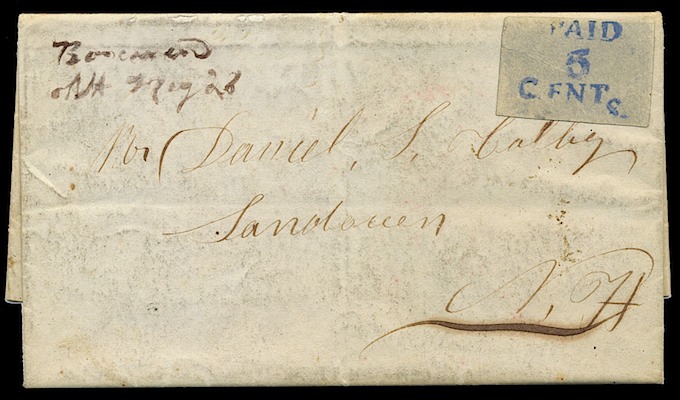 Boscawen
NH May 28
PAID
5
CENTS
Mr Daniel, S, Colby
Sandowen
N, H